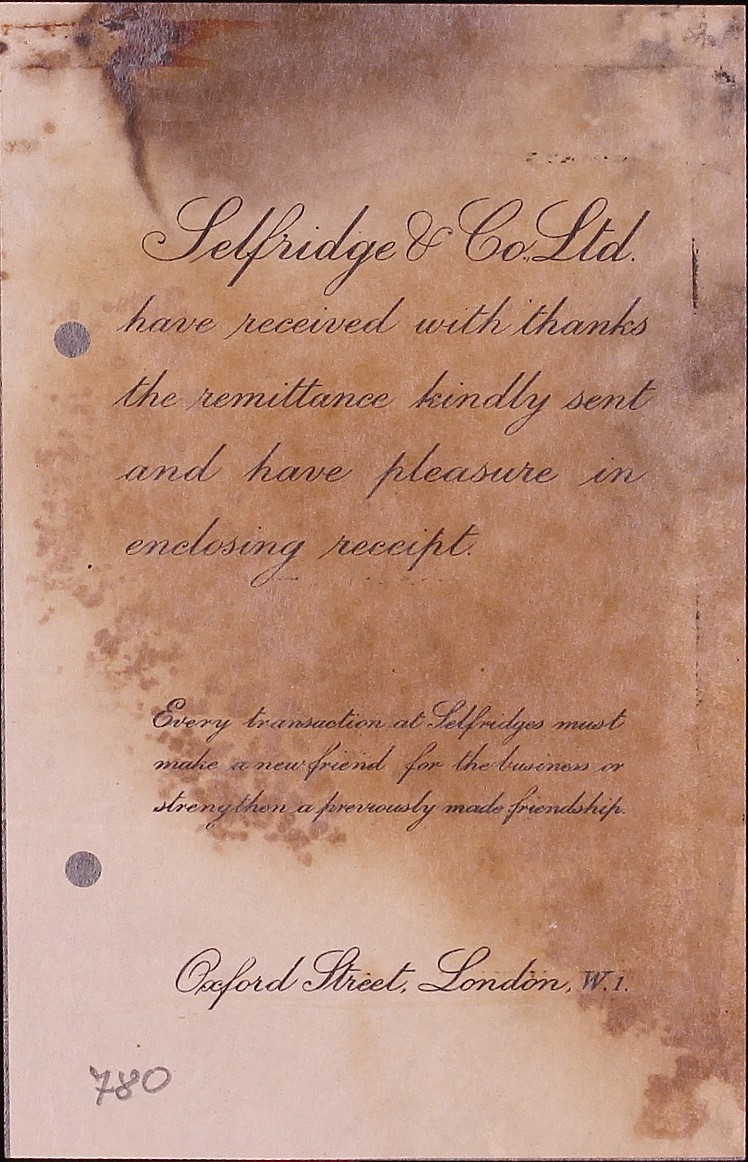 Selfridge & Co. Ltd.
have received with thanks
the remittance kindly sent
and have pleasure in
enclosing receipt.
Every transaction at Selfridges must
make a new friend for the business or
strengthen a previously made friendship.
Oxford Street, London, W.1.
780